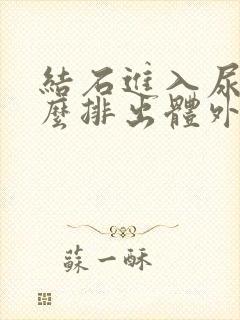 結石進入尿
麼排出體外
蘇一酥